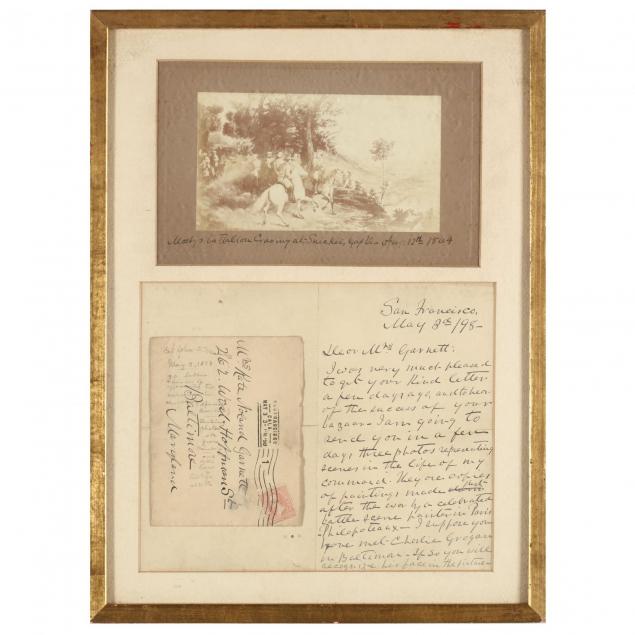 Mosby's Battalion Crossing at Snickers Gap Va Aug. 12th 1864
San Francisco,
May 3rd/98-
Dear Mrs Garnett:
I was very much pleased
to get your kind letter
a few days ago, and to hear
of the success of your
bazaar - I am going to
send you in a few
days three photos representing
scenes in the life of my
command. They are copies
of paintings made just
after the war by a celebrated
battle scene painter in Paris
Philopoteaux - I suppose you
have met Charlie Grogan
in Baltimore - If so you will
recognize his face in the picture -
Mrs Kate Noland Garnett
262. West Hoffman St
Baltimore
Maryland
May 3, 1898
SAN FRANCISCO
MAY 3
1